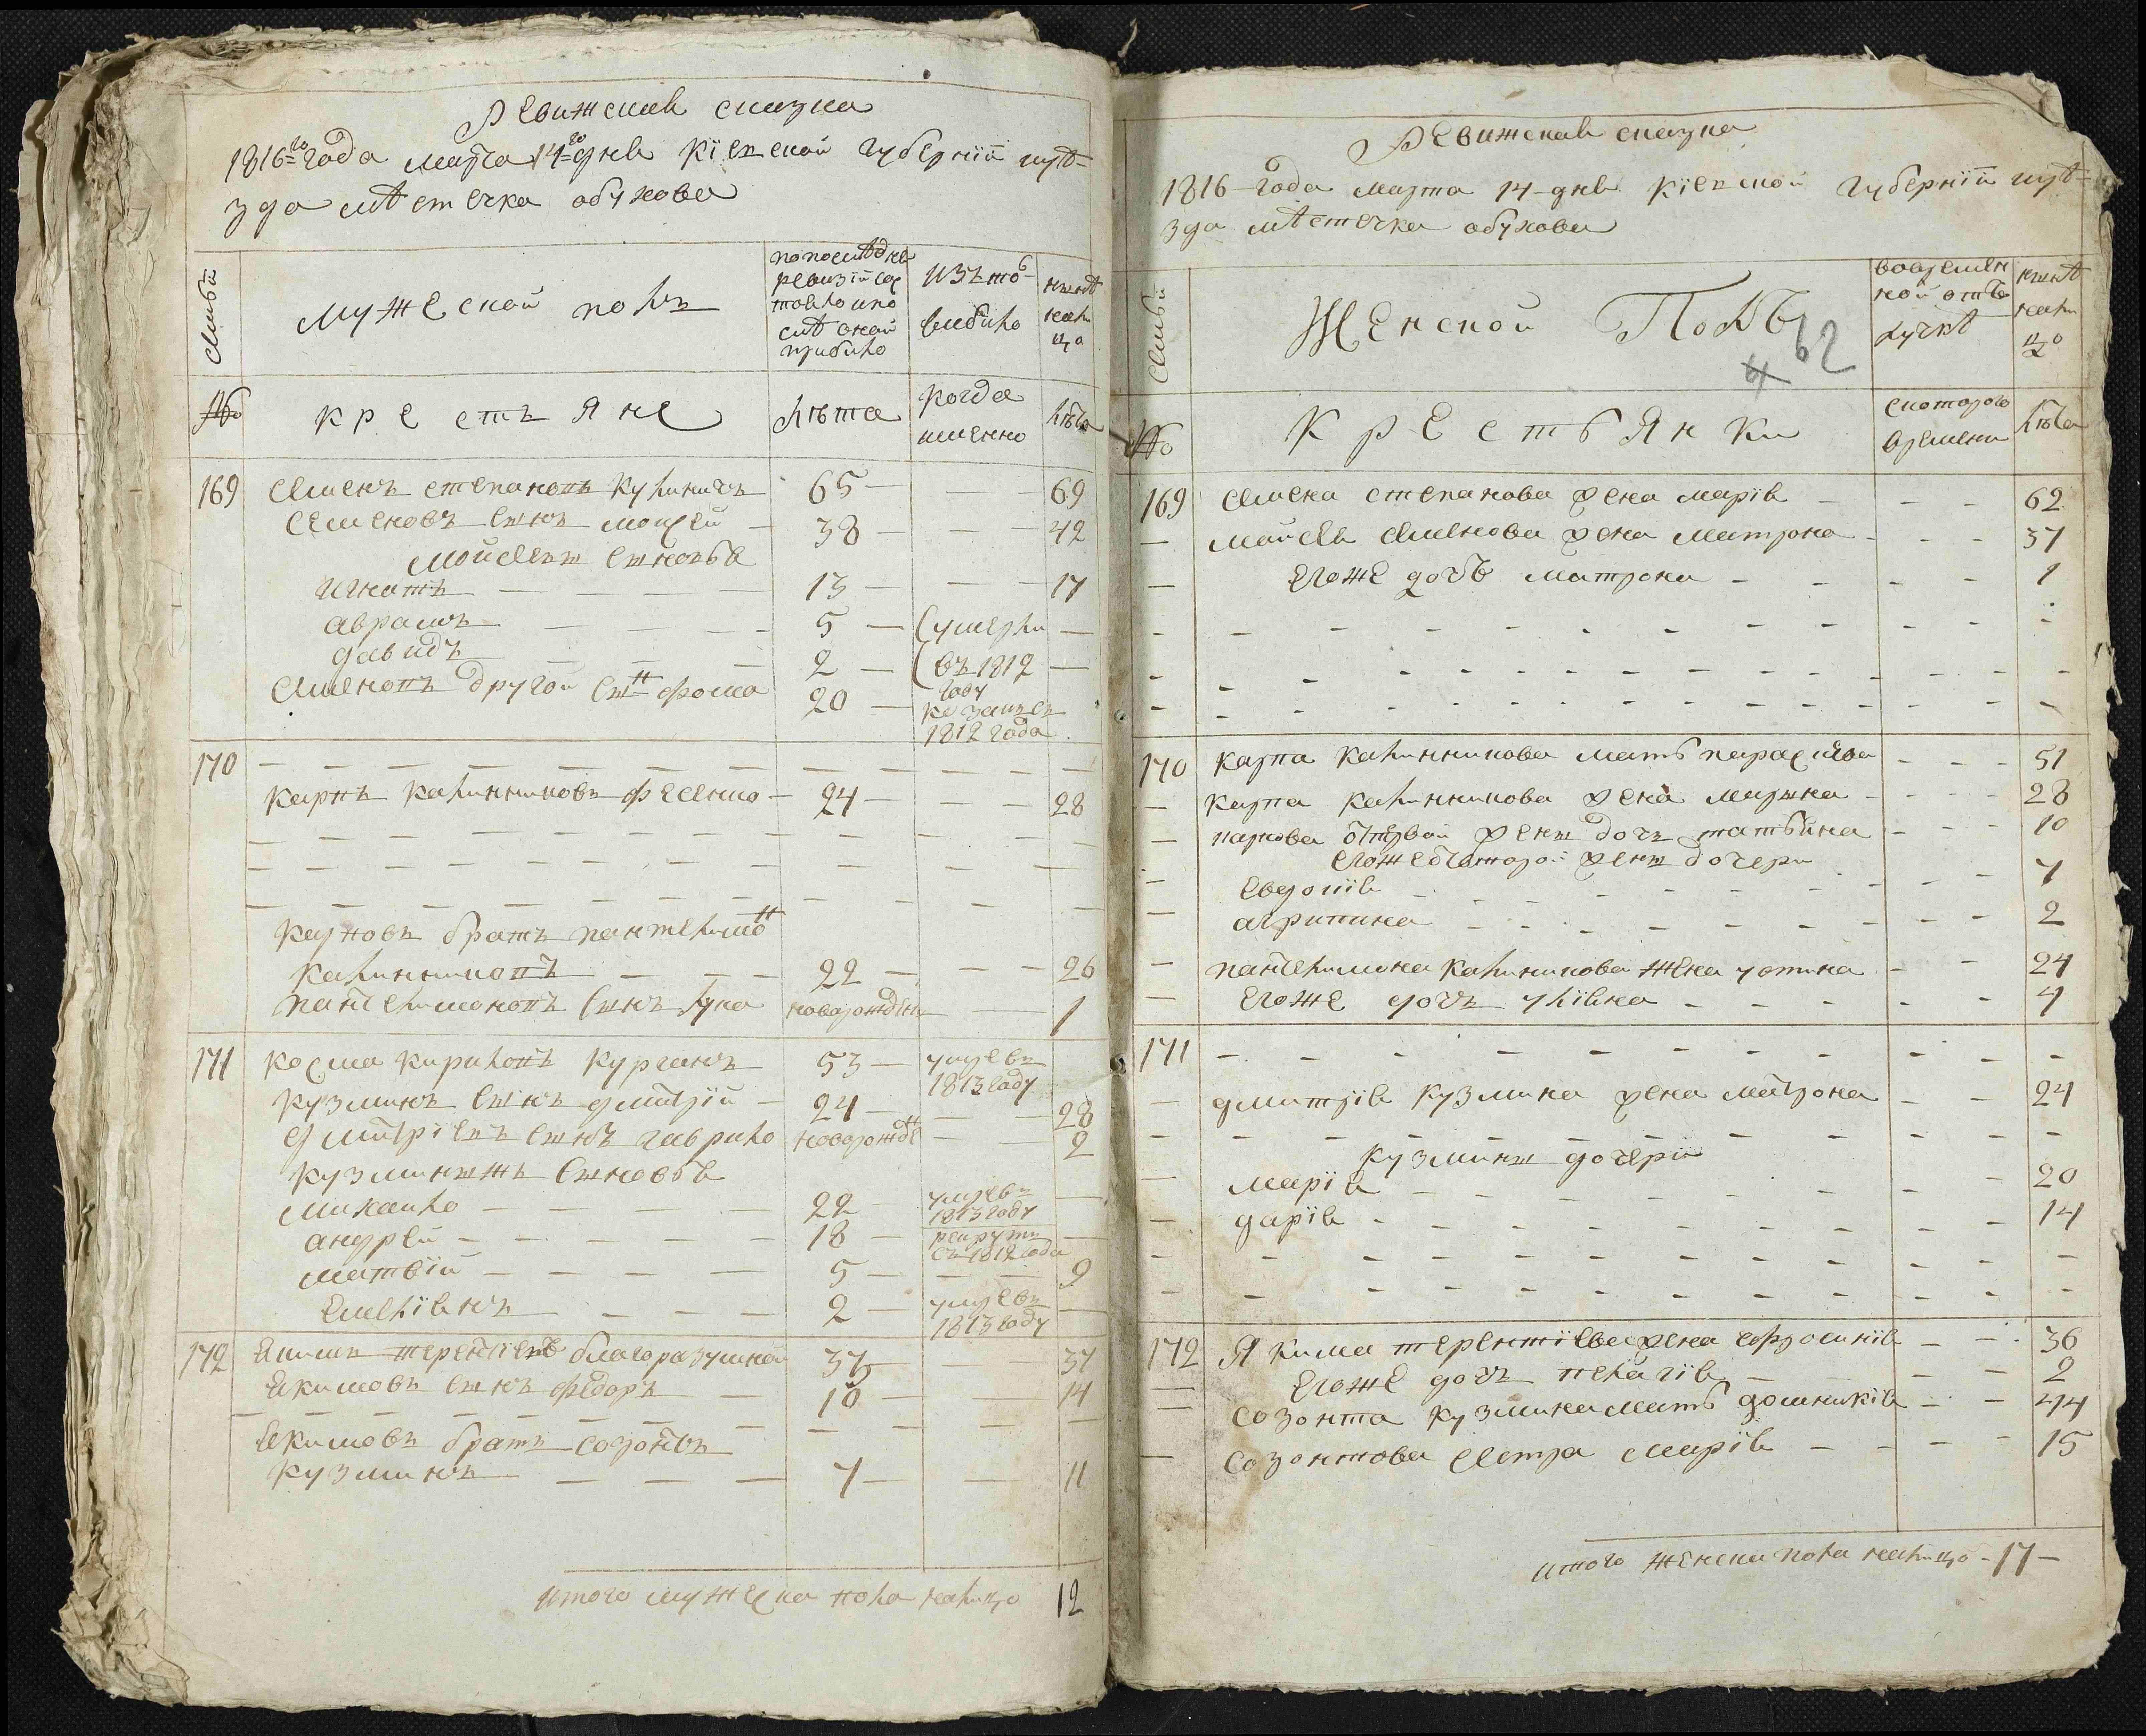 Ревижская сказка
1816го года марта 14го дня Кіевской губерніи уѣ-
зда мѣстечка обухова
семьи
мужеской полъ
по последней
ревизіи сос
тояло и по
слѣ оной
прибыло
изъ то-
выбыло
ныне
нали
цо
№
крестьяне
лѣта
когда
именно
лѣта
169 Семенъ степановъ Кулиничъ 65 — — 69
Семеновъ сынъ моисей — 38 — — 42
Мойсеевы сыновья
Игнатъ — — — — 13 — — 17
аврамъ — — — — 5 — (умерли —
давидъ — — — — 2 — (въ 1812 —
году
Семеновъ другой сынъ фома 20 — козакъ съ
1812 года
170
Карпъ Калинниковъ фесенко — 24 — — — 28
Карповъ братъ пантелимон
Калинниковъ — — — 22 — — — 26
пантелимоновъ сынъ лука новорожден — — 1
171 Косма Кириловъ Курганъ 53 — умре въ
1813 году
Кузминъ сынъ дмитрій — 24 — — 28
дмитріевъ сынъ гаврило новорожде — — 2
Кузмины жъ сыновья
михаило — — — — 22 — умре въ
1813 году —
андрей — — — — 18 — рекрутъ
съ 1812 года —
матвій — — — — 5 — — — 9
Емеліянъ — — — 2 — умре въ
1813 году —
172 Якимъ терентіевъ благоразумной 33 — — 37
Якимовъ сынъ федоръ — 10 — — 14
Якимовъ братъ созонтъ
Кузминъ — — — 7 — — 11
итого мужеска пола налицо 12
Ревижская сказка
1816 года марта 14 дня Кіевской губерніи уѣ-
зда мѣстечка обухова
семьи
Женской Полъ
62
во времен
ной отъ
лучкѣ
нынѣ
нали
цо
№
Крестьянки
с котораго
времени
лѣта
169 семена степанова жена марія — — — 62
— мойсея семенова жена матрона — — — 37
— Егоже дочь матрона — — — — 1
170 Карпа Калинникова мать параскива — — — 51
— Карпа Калинникова жена марина — — — 28
— карпова отпервой жены дочь татьяна — — — 10
Егоже отвторой жены дочери
— Евдокія 7
— агрипина 2
— пантелимона Калиникова жена устина — — 24
— Егоже дочь уліяна — — — — 4
171
— дмитрія Кузмина жена матрона — — 24
Кузмины дочери
— марія 20
— дарія 14
172 Якима терентіева жена ефросинія — — 36
— Егоже дочь пелагія — — 2
— созонта Кузмина мать домникія — — 44
— созонтова сестра марія — — — — 15
итого женска пола налицо — 17 —